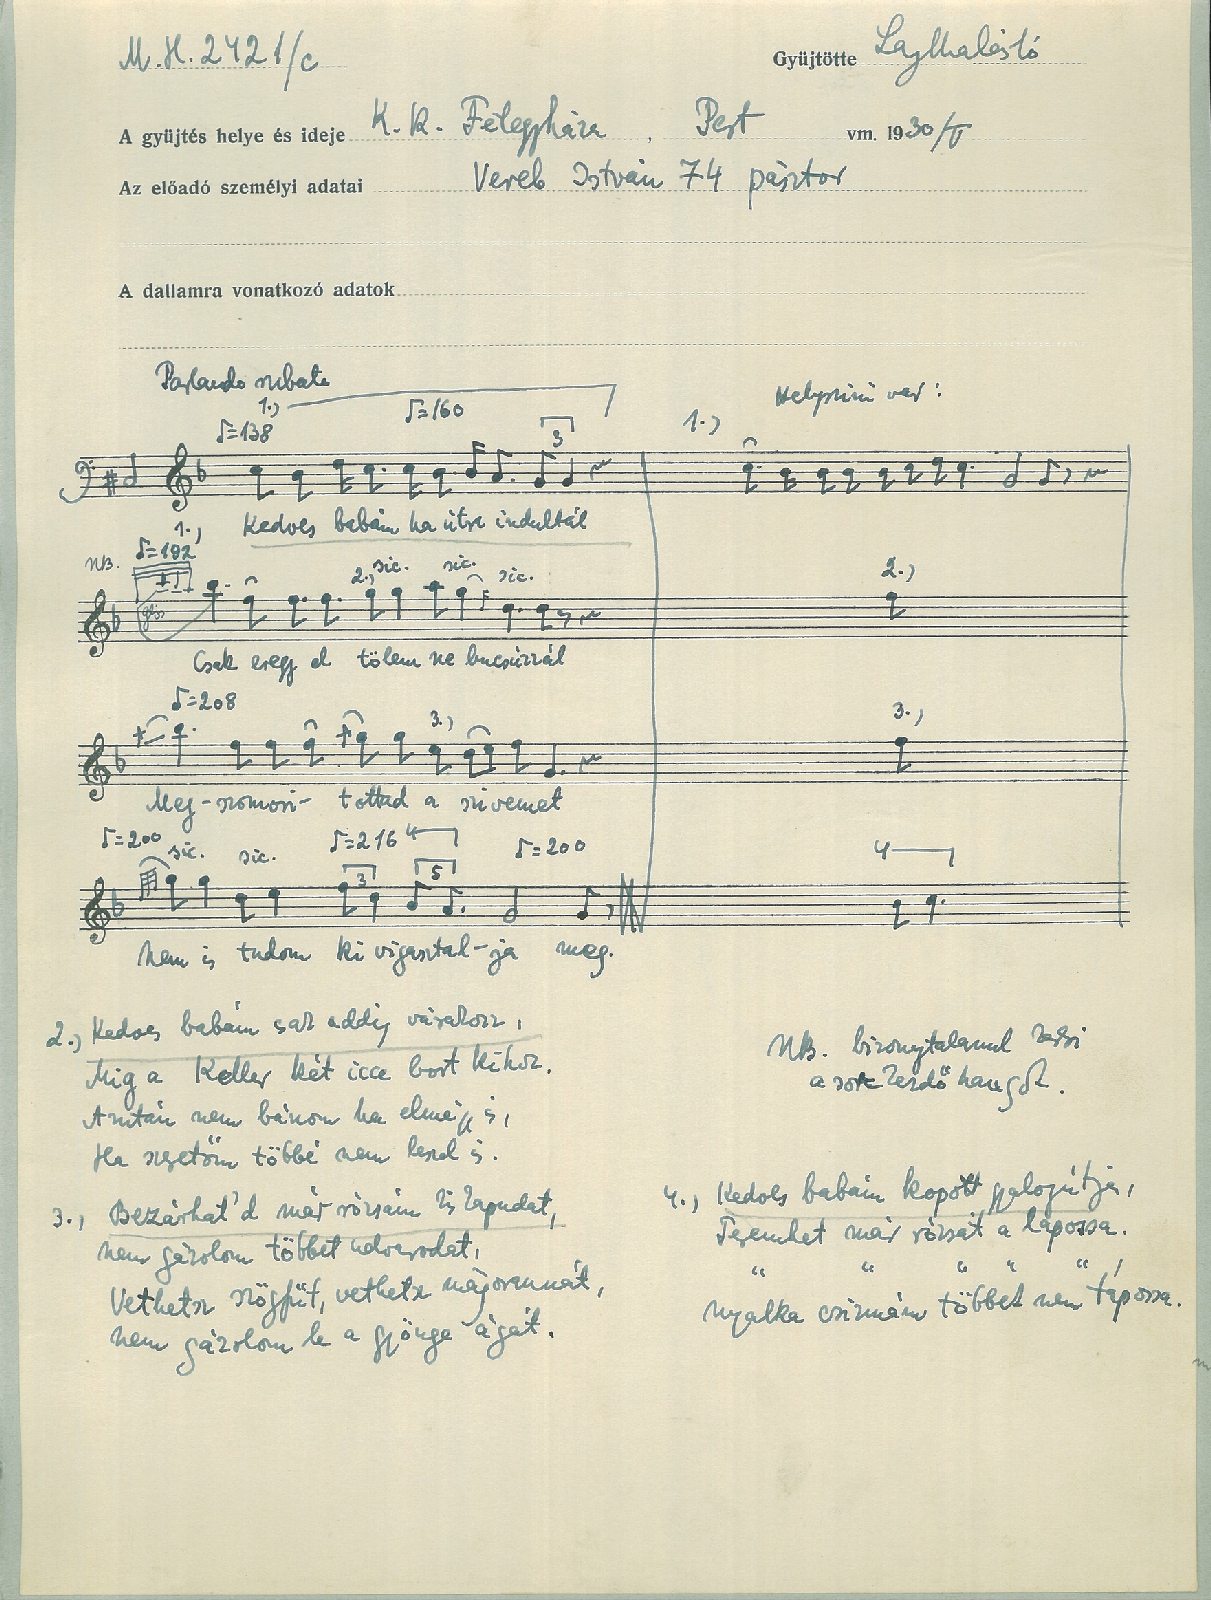 M.H. 2421/c
Gyüjtötte Lajtha László
A gyüjtés helye és ideje K.K. Félegyháza, Pest vm. 1930/V
Az előadó személyi adatai Vereb István 74 pásztor
A dallamra vonatkozó adatok
Parlando rubato
1.) Helyszini var:
♪=138 1.) ♪=160
3
Kedves babám ha útra indultál
NB. ♪=192 1.) 2.) sic. sic. sic. 2.)
gliss
Csak eregy el tőlem ne bucsúzzál
♪=208 3.) 3.)
Meg-szomori-tottad a szivemet
♪=200 sic. sic. ♪=216 4 ♪=200 4
3 5
Nem is tudom ki vigasztal-ja meg.
2.) Kedves babám csak addig várakozz,
Mig a Keller két icce bort kihoz.
Azután nem bánom ha elmégy is,
Ha szeretőm többé nem leszel is.
NB. bizonytalanul kezdi
a sor kezdő hangot.
3.) Bezárhat'd már rózsám kis kapudat,
nem gázolom többet udvarodat,
Vethetsz szögfüt, vethetsz májorannát,
nem gázolom le a gyönge ágát.
4.) Kedves babám kopott gyalogútja,
Teremhet már rózsát a lapossa.
" " " " "
Nyalka csizmám többet nem tápossa.